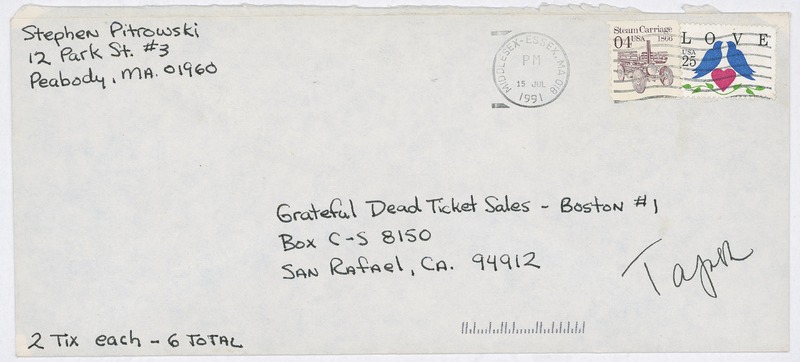 Stephen Pitrowski
12 Park St. #3
Peabody, MA. 01960
MIDDLESEX-ESSEX, MA 018
PM
15 JUL
1991
Steam Carriage
04 USA 1866
LOVE
USA
25
Grateful Dead Ticket Sales - Boston #1
Box C-S 8150
SAN Rafael, CA. 94912
Taper
2 Tix each - 6 TOTAL